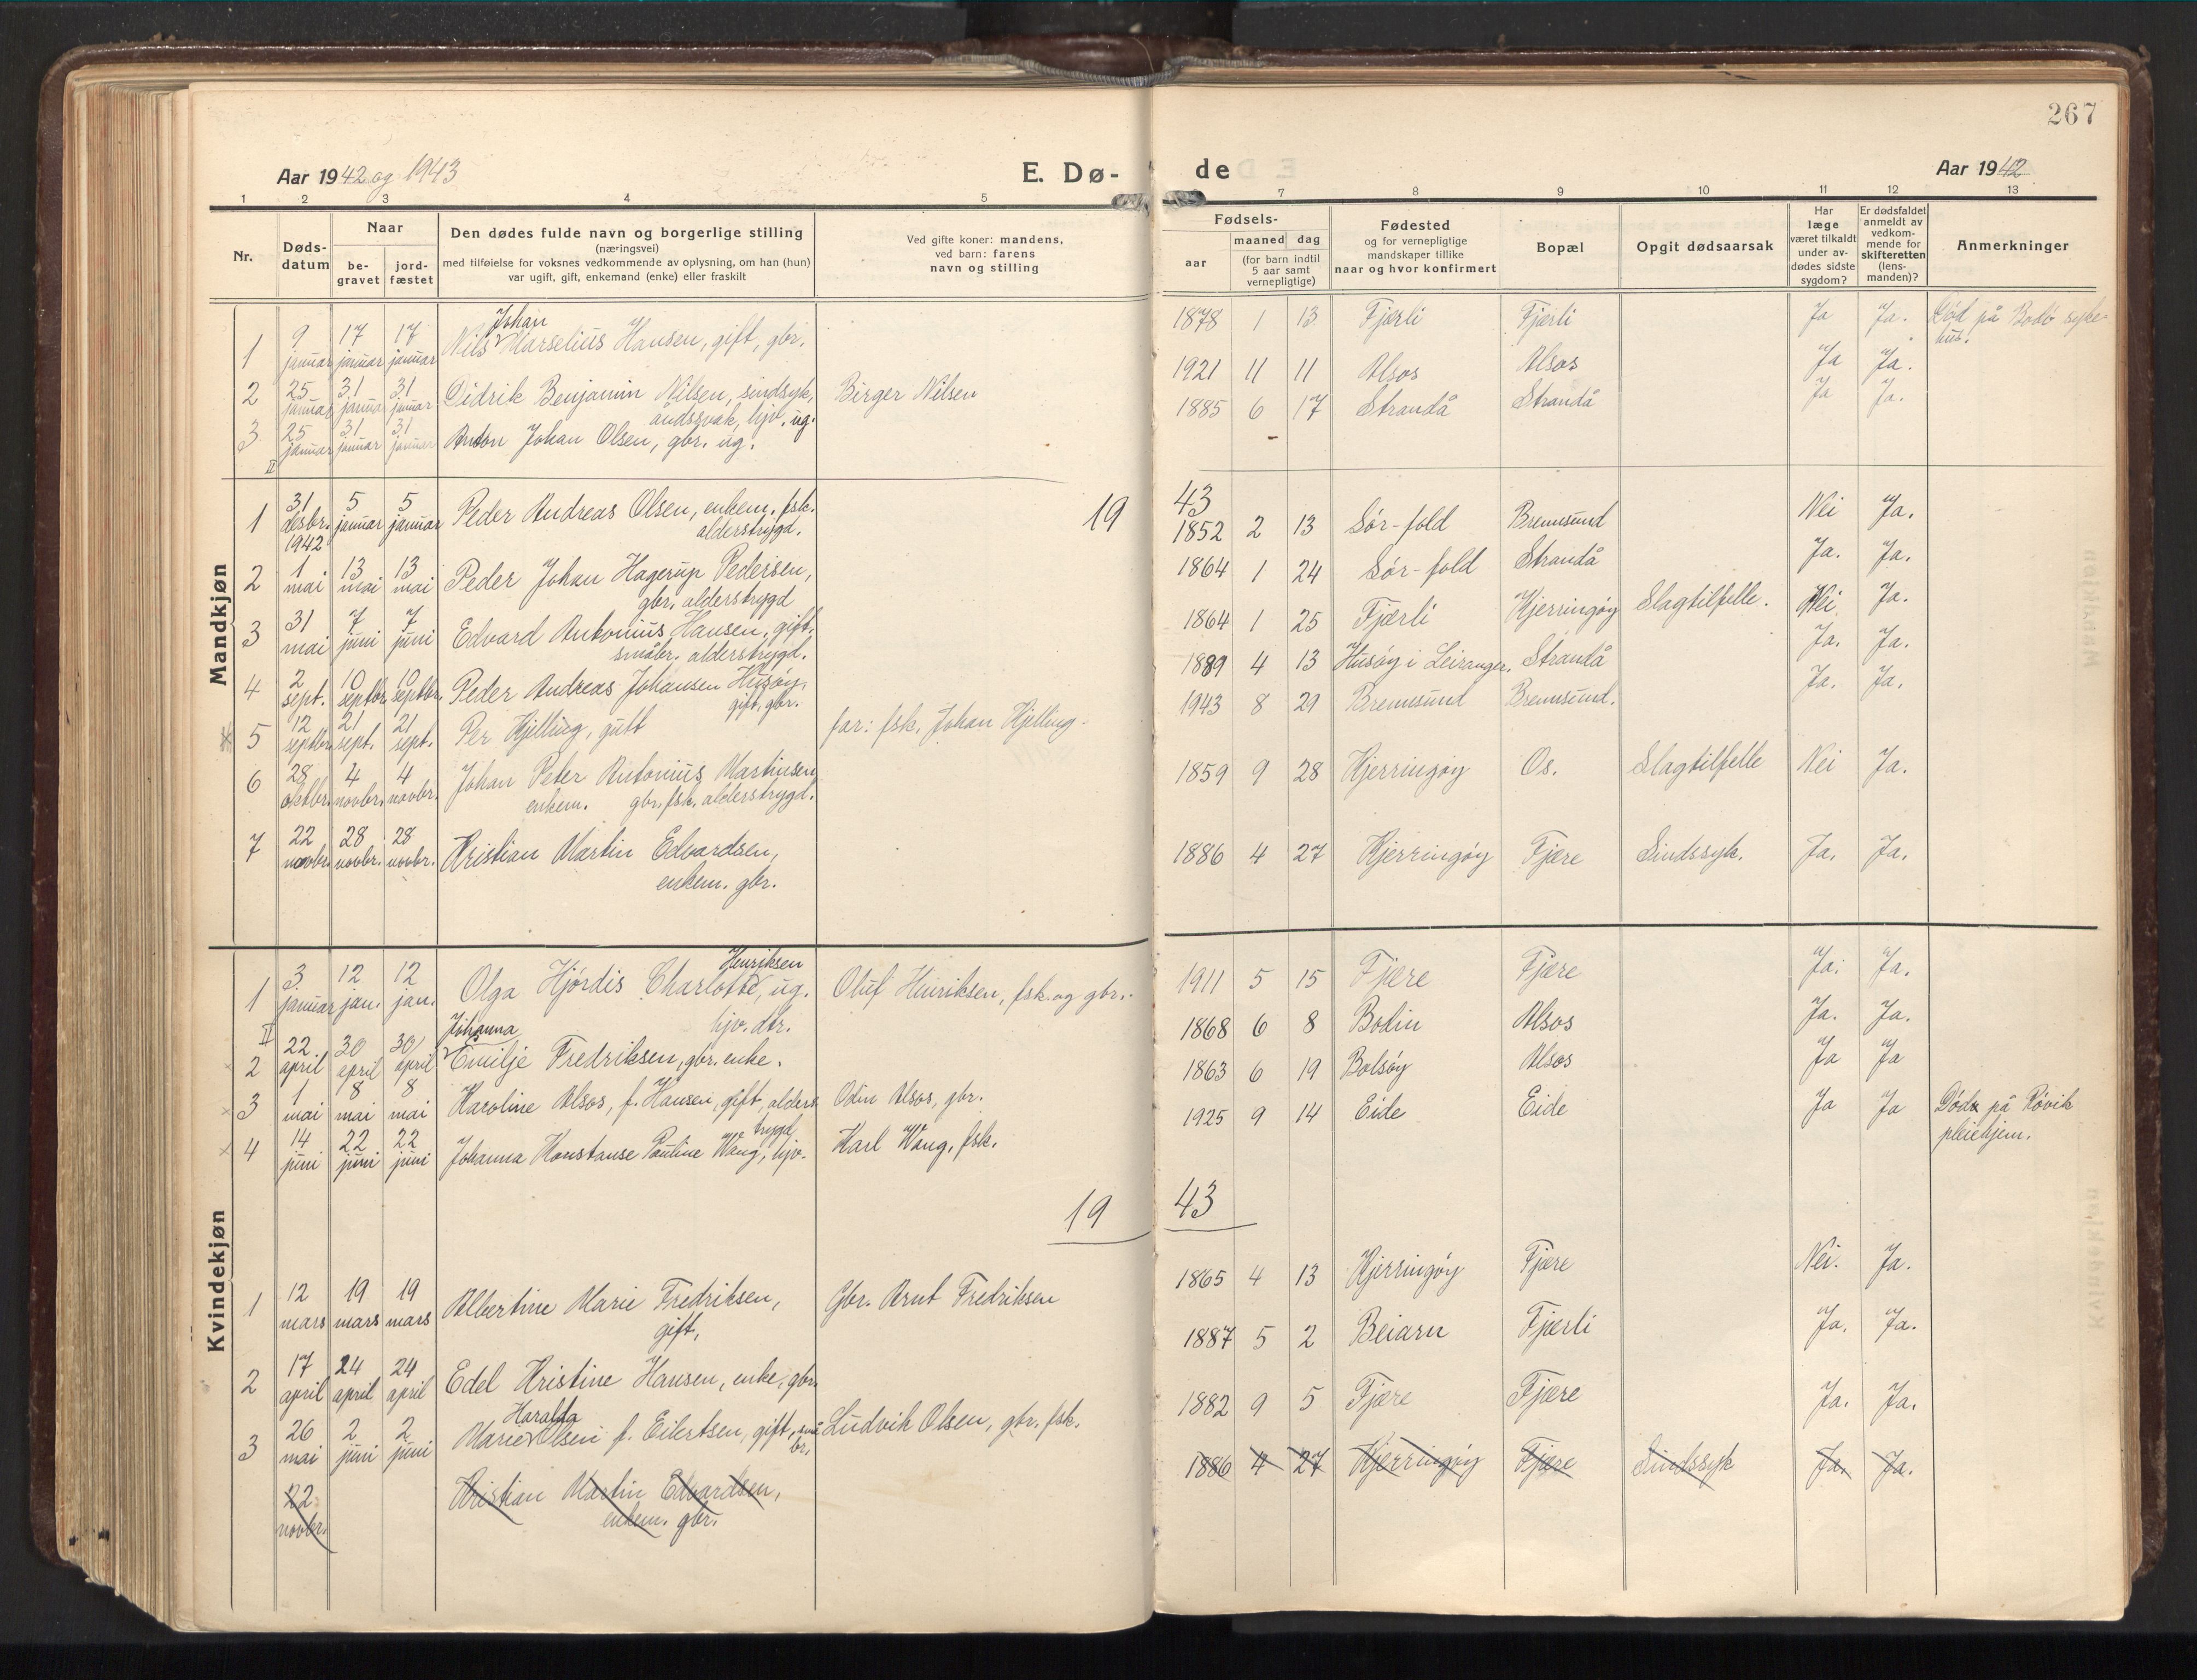 267
Aar 1942 og 1943
E. Dø-
de
Aar 1942
1 2 3 4 5
7 8 9 10 11 12 13
Nr.
Døds-
datum
Naar
be-
gravet
jord-
fæstet
Den dødes fulde navn og borgerlige stilling
(næringsvei)
med tilføielse for voksnes vedkommende av oplysning, om han (hun)
var ugift, gift, enkemand (enke) eller fraskilt
Ved gifte koner: mandens,
ved barn: farens
navn og stilling
Fødsels-
aar
maaned dag
(for barn indtil
5 aar samt
vernepligtige)
Fødested
og for vernepligtige
mandskaper tillike
naar og hvor konfirmert
Bopæl
Opgit dødsaarsak
Har
læge
været tilkaldt
under av-
dødes sidste
sygdom?
Er dødsfaldet
anmeldt av
vedkom-
mende for
skifteretten
(lens-
manden)?
Anmerkninger
Mandkjøn
Johan
1 9 januar 17 januar 17 januar Nils Marselius Hansen, gift, gbr.
1878 1 13 Fjærli Fjærli Ja Ja. Død på Bodø syke-
hus.
2 25 januar 31 januar 31 januar Didrik Benjamin Nilsen, sindsyk, Birger Nilsen
åndssvak, hjv. ug.
1921 11 11 Alsos Alsos Ja Ja.
3 25 januar 31 januar 31 januar Anton Johan Olsen, gbr. ug.
1885 6 17 Strandå Strandå Ja Ja.
II
19 43
1 31 desbr. 1942 5 januar 5 januar Peder Andreas Olsen, enkem. fsk.
alderstrygd.
1852 2 13 Sør-fold Bremsund Nei Ja.
2 1 mai 13 mai 13 mai Peder Johan Hagerup Pedersen,
gbr. alderstrygd
1864 1 24 Sør-fold Strandå Ja. Ja.
3 31 mai 7 juni 7 juni Edvard Antonius Hansen, gift,
småbr. alderstrygd.
1864 1 25 Fjærli Kjerringøy Slagtilfelle. Nei Ja.
4 2 sept. 10 septbr. 10 septbr. Peder Andreas Johansen Husøy,
gift, gbr.
1889 4 13 Husøy i Leiranger. Strandå Ja. Ja.
x 5 12 septbr. 21 sept. 21 sept. Per Hjelling, gutt far: fsk. Johan Hjelling.
1943 8 29 Bremsund Bremsund. Ja. Ja.
6 28 oktbr. 4 novbr. 4 novbr. Johan Peter Antonius Martinsen
enkem. gbr. fsk. alderstrygd.
1859 9 28 Kjerringøy Os. Slagtilfelle Nei Ja.
7 22 novbr. 28 novbr. 28 novbr. Kristian Martin Edvardsen,
enkem. gbr.
1886 4 27 Kjerringøy Fjære Sindssyk. Ja. Ja.
Kvindekjøn
Henriksen
1 3 januar 12 jan. 12 jan. Olga Hjørdis Charlotte, ug. Oluf Henriksen, fsk. og gbr.
hjv. dtr.
1911 5 15 Fjære Fjære Ja. Ja.
II
Johanna
x 2 22 april 30 april 30 april Emilje Fredriksen, gbr. enke.
1868 6 8 Bodin Alsos Ja. Ja.
x 3 1 mai 8 mai 8 mai Karoline Alsos, f. Hansen, gift, alders Odin Alsos, gbr.
trygd,
1863 6 19 Bolsøy Alsos Ja Ja
x 4 14 juni 22 juni 22 juni Johanna Konstanse Pauline Wang, hjv. Karl Wang, fsk.
1925 9 14 Eide Eide Ja Ja Død på Røvik
pleiehjem.
19 43
1 12 mars 19 mars 19 mars Albertine Marie Fredriksen, Gbr. Arnt Fredriksen
gift,
1865 4 13 Kjerringøy Fjære Nei. Ja.
2 17 april 24 april 24 april Edel Kristine Hansen, enke, gbr.
1887 5 2 Beiarn Fjærli Ja. Ja.
Haralda
3 26 mai 2 juni 2 juni Marie Olsen f. Eilertsen, gift, små Ludvik Olsen, gbr. fsk.
br.
1882 9 5 Fjære Fjære Ja. Ja.
22 novbr. Kristian Martin Edvardsen,
enkem. gbr.
1886 4 27 Kjerringøy Fjære Sindssyk Ja. Ja.